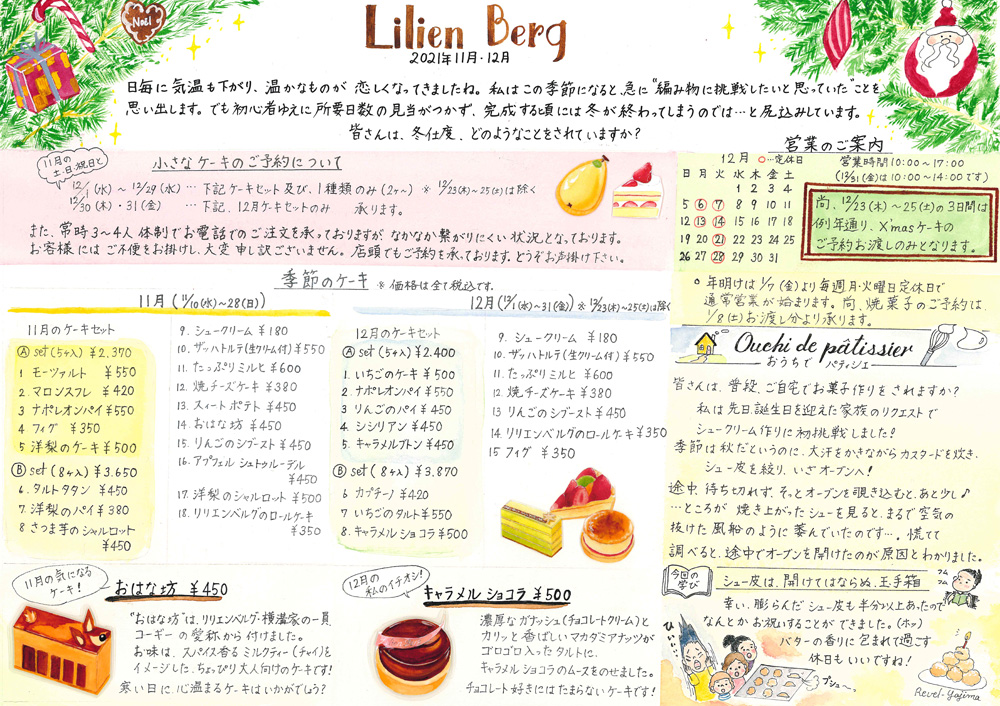 Noël
Lilien Berg
2021年11月・12月
日毎に気温も下がり、温かなものが恋しくなってきましたね。私はこの季節になると、急に"編み物に挑戦したいと思っていた"ことを
思い出します。でも初心者ゆえに所要日数の見当がつかず、完成する頃には冬が終わってしまうのでは…と尻込みしています。
皆さんは、冬仕度、どのようなことをされていますか?
11月の
土・日・祝日と
小さなケーキのご予約について
12/1(水)〜12/29(水)…下記ケーキセット及び、1種類のみ(2ヶ〜) ※12/23(木)〜25(土)は除く
12/30(木)・31(金) …下記、12月ケーキセットのみ 承ります。
また、常時3〜4人体制でお電話でのご注文を承っておりますが、なかなか繋がりにくい状況となっております。
お客様にはご不便をお掛けし、大変申し訳ございません。店頭でもご予約を承っております。どうぞお声掛け下さい。
営業のご案内
12月 ○…定休日
営業時間10:00〜17:00
(12/31(金)は10:00〜14:00です)
日 月 火 水 木 金 土
1 2 3 4
5 6 7 8 9 10 11
12 13 14 15 16 17 18
19 20 21 22 23 24 25
26 27 28 29 30 31
尚、12/23(木)〜25(土)の3日間は
例年通り、X'masケーキの
ご予約お渡しのみとなります。
○年明けは1/7(金)より毎週月・火曜日定休日で
通常営業が始まります。尚、焼菓子のご予約は、
1/8(土)お渡し分より承ります。
季節のケーキ ※価格は全て税込です。
11月(11/10(水)〜28(日))
11月のケーキセット
Ⓐ set(5ヶ入) ¥2,370
1 モーツァルト ¥550
2 マロンスフレ ¥420
3 ナポレオンパイ ¥550
4 フィグ ¥350
5 洋梨のケーキ ¥500
Ⓑ set(8ヶ入) ¥3,650
6 タルトタタン ¥450
7 洋梨のパイ ¥380
8 さつま芋のシャルロット
¥450
9. シュークリーム ¥180
10. ザッハトルテ(生クリーム付) ¥550
11. たっぷりミルヒ ¥600
12. 焼チーズケーキ ¥380
13. スィートポテト ¥450
14. おはな坊 ¥450
15. りんごのシブースト ¥450
16. アプフェルシュトゥルーデル
¥450
17. 洋梨のシャルロット ¥500
18. リリエンベルグのロールケーキ
¥350
12月(12/1(水)〜31(金)) ※12/23(木)〜25(土)は除く
12月のケーキセット
Ⓐ set(5ヶ入) ¥2,400
1. いちごのケーキ ¥500
2. ナポレオンパイ ¥550
3. りんごのパイ ¥450
4. シシリアン ¥450
5. キャラメルブトン ¥450
Ⓑ set(8ヶ入) ¥3,870
6 カプチーノ ¥420
7 いちごのタルト ¥550
8. キャラメルショコラ ¥500
9. シュークリーム ¥180
10. ザッハトルテ(生クリーム付) ¥550
11. たっぷりミルヒ ¥600
12. 焼チーズケーキ ¥380
13. りんごのシブースト ¥450
14. リリエンベルグのロールケーキ ¥350
15. フィグ ¥350
11月の気になる
ケーキ!
おはな坊 ¥450
"おはな坊"は、リリエンベルグ・横溝家の一員
コーギーの愛称から付けました。
お味は、スパイス香るミルクティー(チャイ)を
イメージした、ちょっぴり大人向けのケーキです!
寒い日に、心温まるケーキはいかがでしょう?
12月の
私のイチオシ!
キャラメルショコラ ¥500
濃厚なガナッシュ(チョコレートクリーム)と
カリッと香ばしいマカダミアナッツが
ゴロゴロ入ったタルトに、
キャラメルショコラのムースをのせました。
チョコレート好きにはたまらないケーキです!
Ouchi de pâtissier
おうちで パティシエ
皆さんは、普段、ご自宅でお菓子作りをされますか?
私は先日、誕生日を迎えた家族のリクエストで
シュークリーム作りに初挑戦しました!
季節は秋だというのに、大汗をかきながらカスタードを炊き、
シュー皮を絞り、いざオーブンへ!
途中、待ち切れず、そっとオーブンを覗き込むと、あと少し♪
…ところが、焼き上がったシューを見ると、まるで空気の
抜けた風船のように萎んでいたのです…。慌てて
調べると、途中でオーブンを開けたのが原因とわかりました。
今回の
学び
シュー皮は、開けてはならぬ、玉手箱
フム
フム
幸い、膨らんだシュー皮も半分以上あったので
なんとかお祝いすることができました。(ホッ)
バターの香りに包まれて過ごす
休日もいいですね!
ひぃぃぃ
プシュ〜。
Revel-Yajima